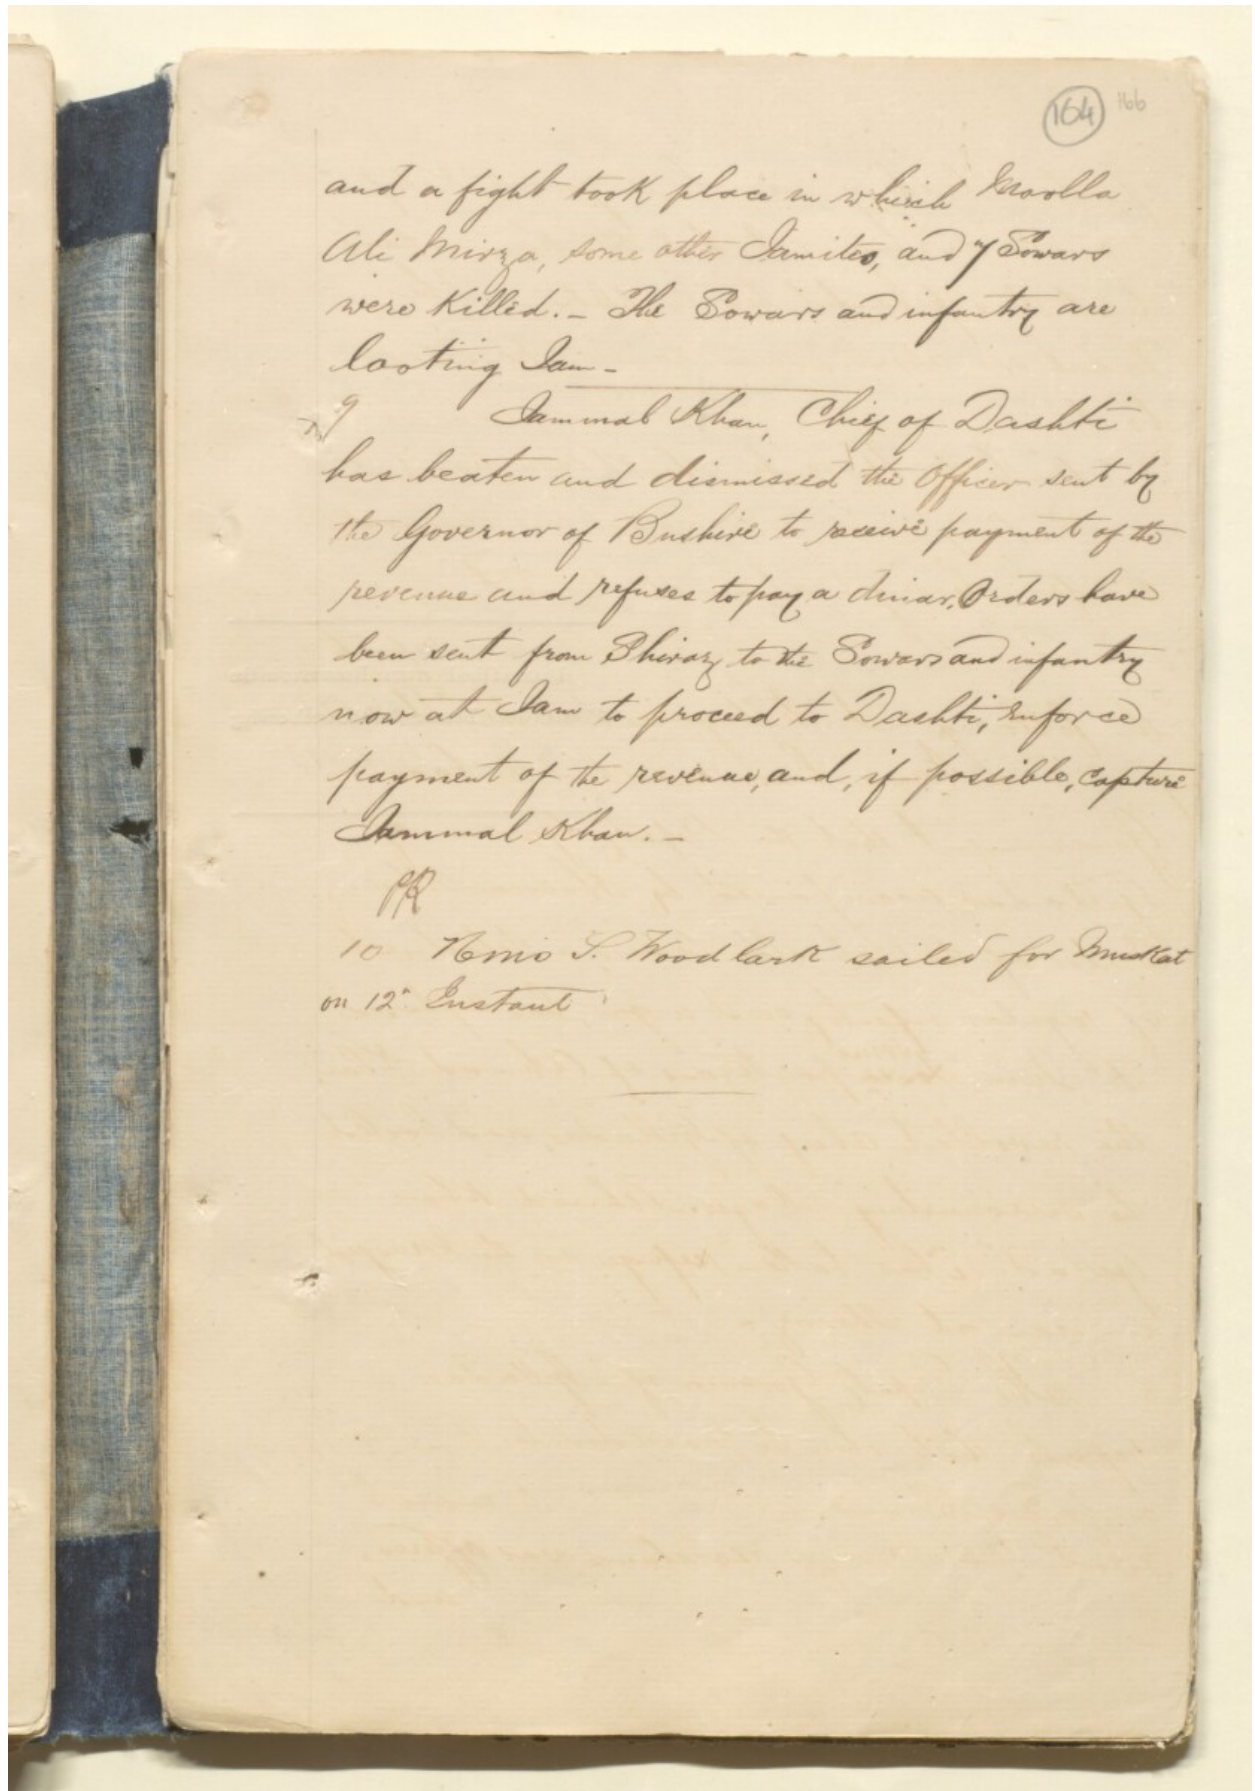 164 166
and a fight took place in which Moolla
Ali Mirza, some other Jamites, and 7 Sowars
were Killed. - The Sowars and infantry are
looting Jam -
9 Jammal Khan, Chief of Dashti
has beaten and dismissed the Officer sent by
the Governor of Bushire to receive payment of the
revenue and refuses to pay a dinar. Orders have
been sent from Shiraz to the Sowars and infantry
now at Jam to proceed to Dashti, enforce
payment of the revenue, and, if possible, capture
Jammal Khan. -
PR
10 S. Woodlark sailed for Muskat
on 12" Instant